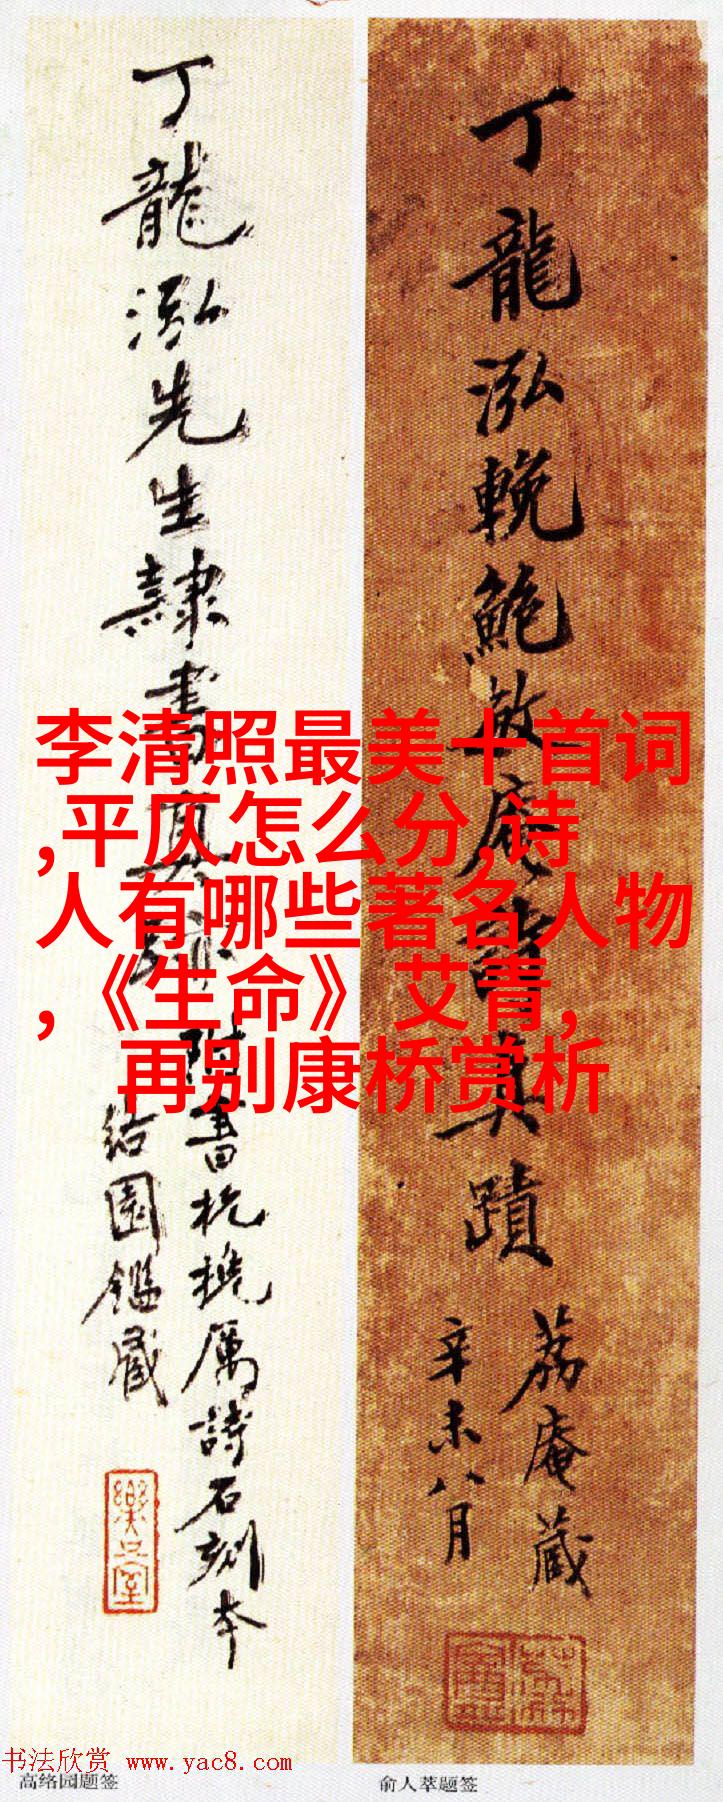 丁龍泓先生隸書真跡
附書杭挽厲詩石刻本
络園鑑藏
丁龍泓輓鮑敬庵書真蹟
荔庵藏
辛未八月
李清照最美十首词
,平仄怎么分,诗
人有哪些著名人物
,《生命》 艾青,
再别康桥赏析
书法欣赏 www.yac8.com
高络园题签
俞人萃题签